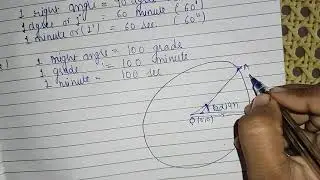 1 right angle = 90 degr
1 degree or 1° = 60 minute (60')
1 minute or (1') = 60 sec (60")
1 right angle = 100 grade
1 grade = 100 minute
1 minute = 100 sec
A
O(0,0)